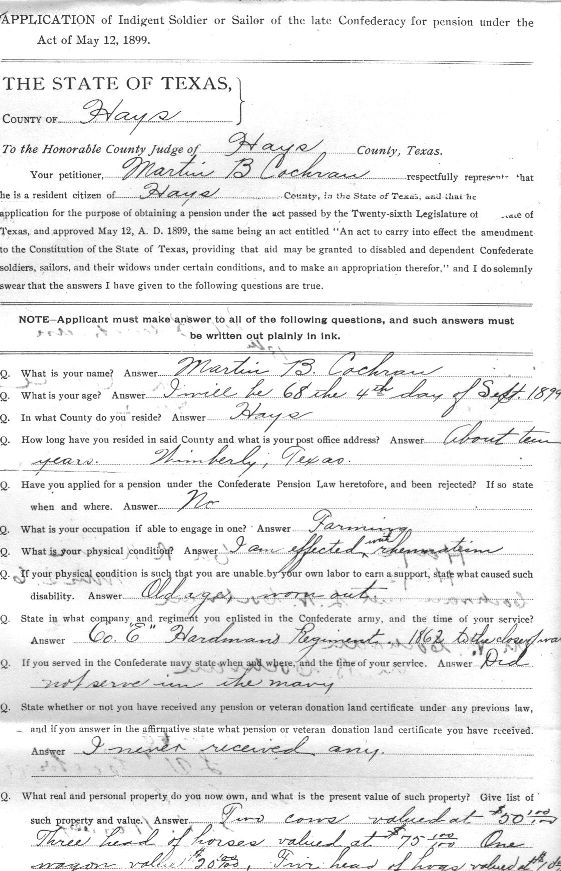 APPLICATION of Indigent Soldier or Sailor of the late Confederacy for pension under the
Act of May 12, 1899.
THE STATE OF TEXAS,
COUNTY OF Hays
To the Honorable County Judge of Hays County, Texas.
Your petitioner, Martin B Cochran respectfully represents that
he is a resident citizen of Hays County, in the State of Texas, and that he
application for the purpose of obtaining a pension under the act passed by the Twenty-sixth Legislature of State of
Texas, and approved May 12, A. D. 1899, the same being an act entitled "An act to carry into effect the amendment
to the Constitution of the State of Texas, providing that aid may be granted to disabled and dependent Confederate
soldiers, sailors, and their widows under certain conditions, and to make an appropriation therefor," and I do solemnly
swear that the answers I have given to the following questions are true.
NOTE—Applicant must make answer to all of the following questions, and such answers must
be written out plainly in ink.
Q. What is your name? Answer Martin B. Cochran
Q. What is your age? Answer I will be 68 the 4th day of Sept. 1899
Q. In what County do you reside? Answer Hays
Q. How long have you resided in said County and what is your post office address? Answer About ten
years. Wimberly, Texas.
Q. Have you applied for a pension under the Confederate Pension Law heretofore, and been rejected? If so state
when and where. Answer No
Q. What is your occupation if able to engage in one? Answer Farming
Q. What is your physical condition? Answer I am effected with rheumatism
Q. If your physical condition is such that you are unable by your own labor to earn a support, state what caused such
disability. Answer Old age, worn out
Q. State in what company and regiment you enlisted in the Confederate army, and the time of your service?
Answer Co. "E" Hardmans Regiment 1862 to the close of war
Q. If you served in the Confederate navy state when and where, and the time of your service. Answer Did
not serve in the navy
Q. State whether or not you have received any pension or veteran donation land certificate under any previous law,
and if you answer in the affirmative state what pension or veteran donation land certificate you have received.
Answer I never received any.
Q. What real and personal property do you now own, and what is the present value of such property? Give list of
such property and value. Answer Two cows valued at $50
Three head of horses valued at $75 One
wagon value $20, Five head of hogs valued at